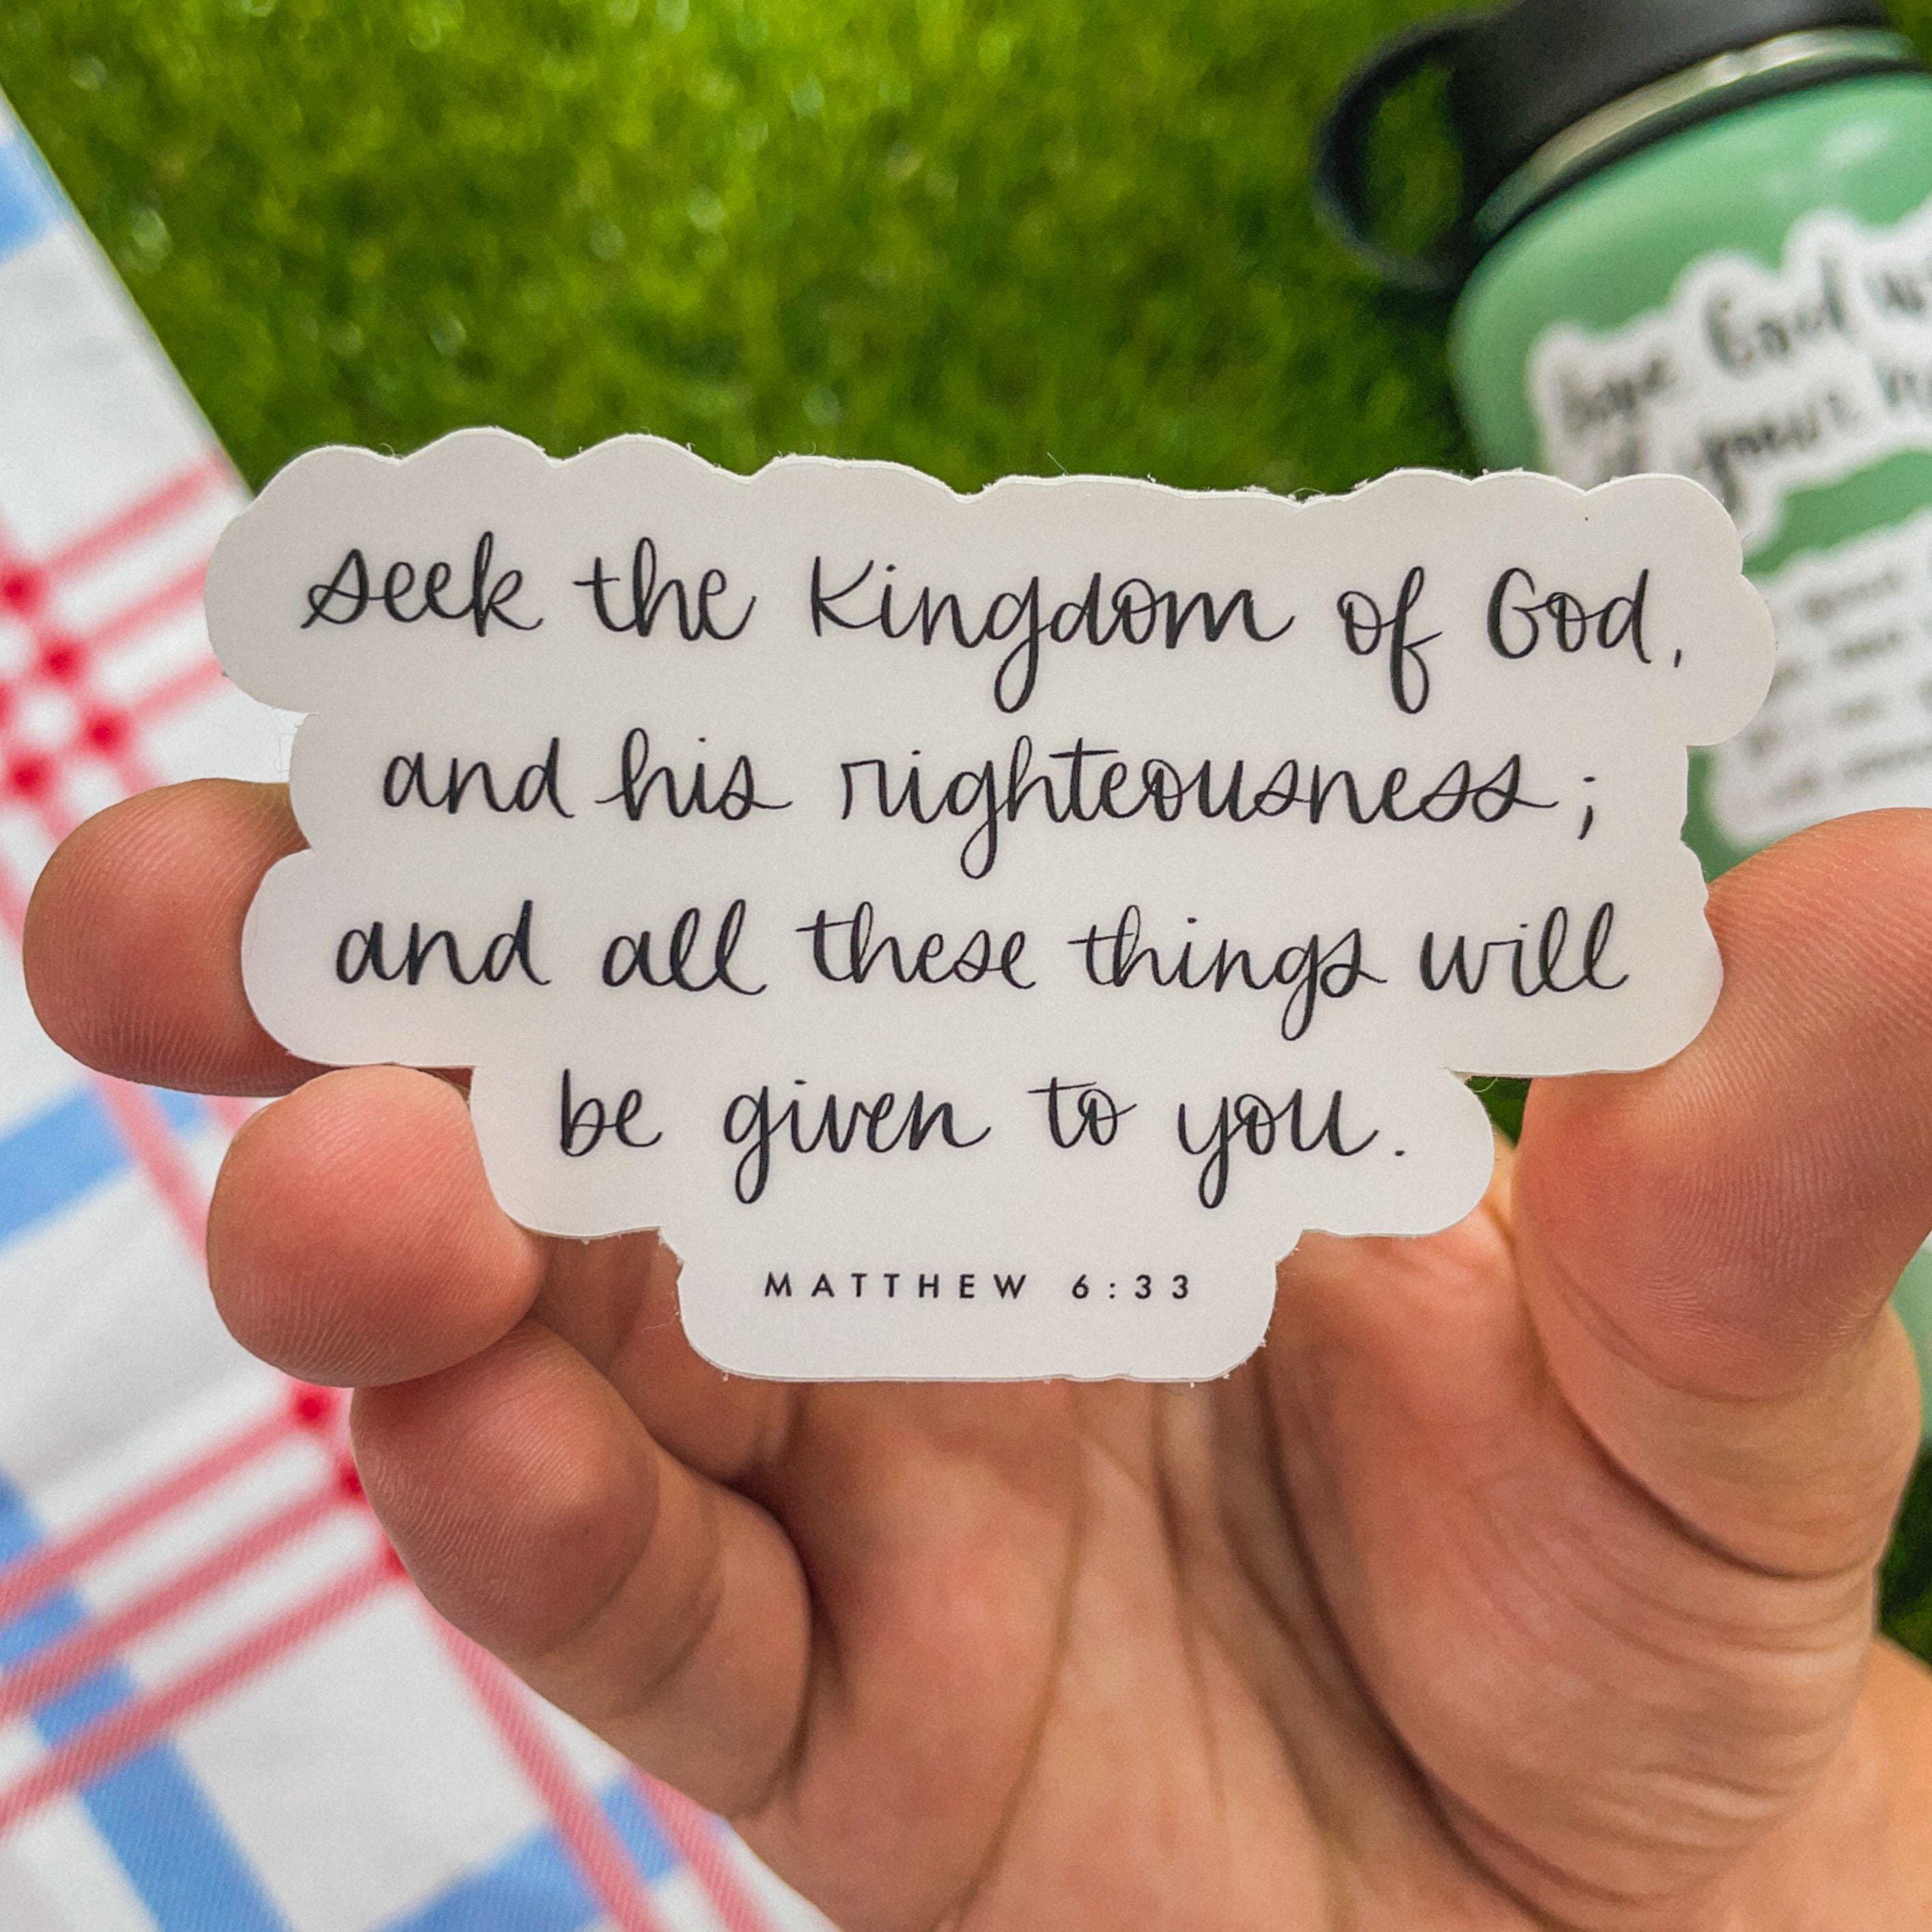 seek the Kingdom of God,
and his righteousness;
and all these things will
be given to you.
MATTHEW 6:33
God
your